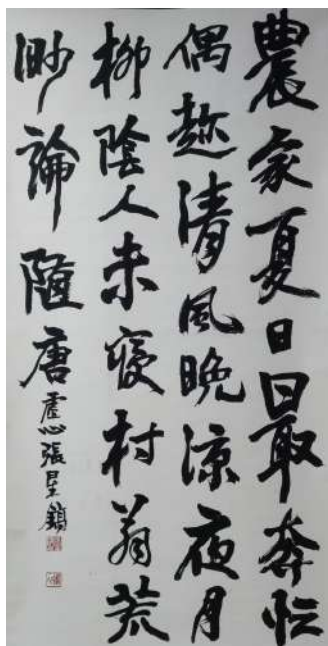 農家夏日最奔忙
偶趁清風晚涼夜月
柳陰人未寢村翁荒
渺論隋唐
虛心張星